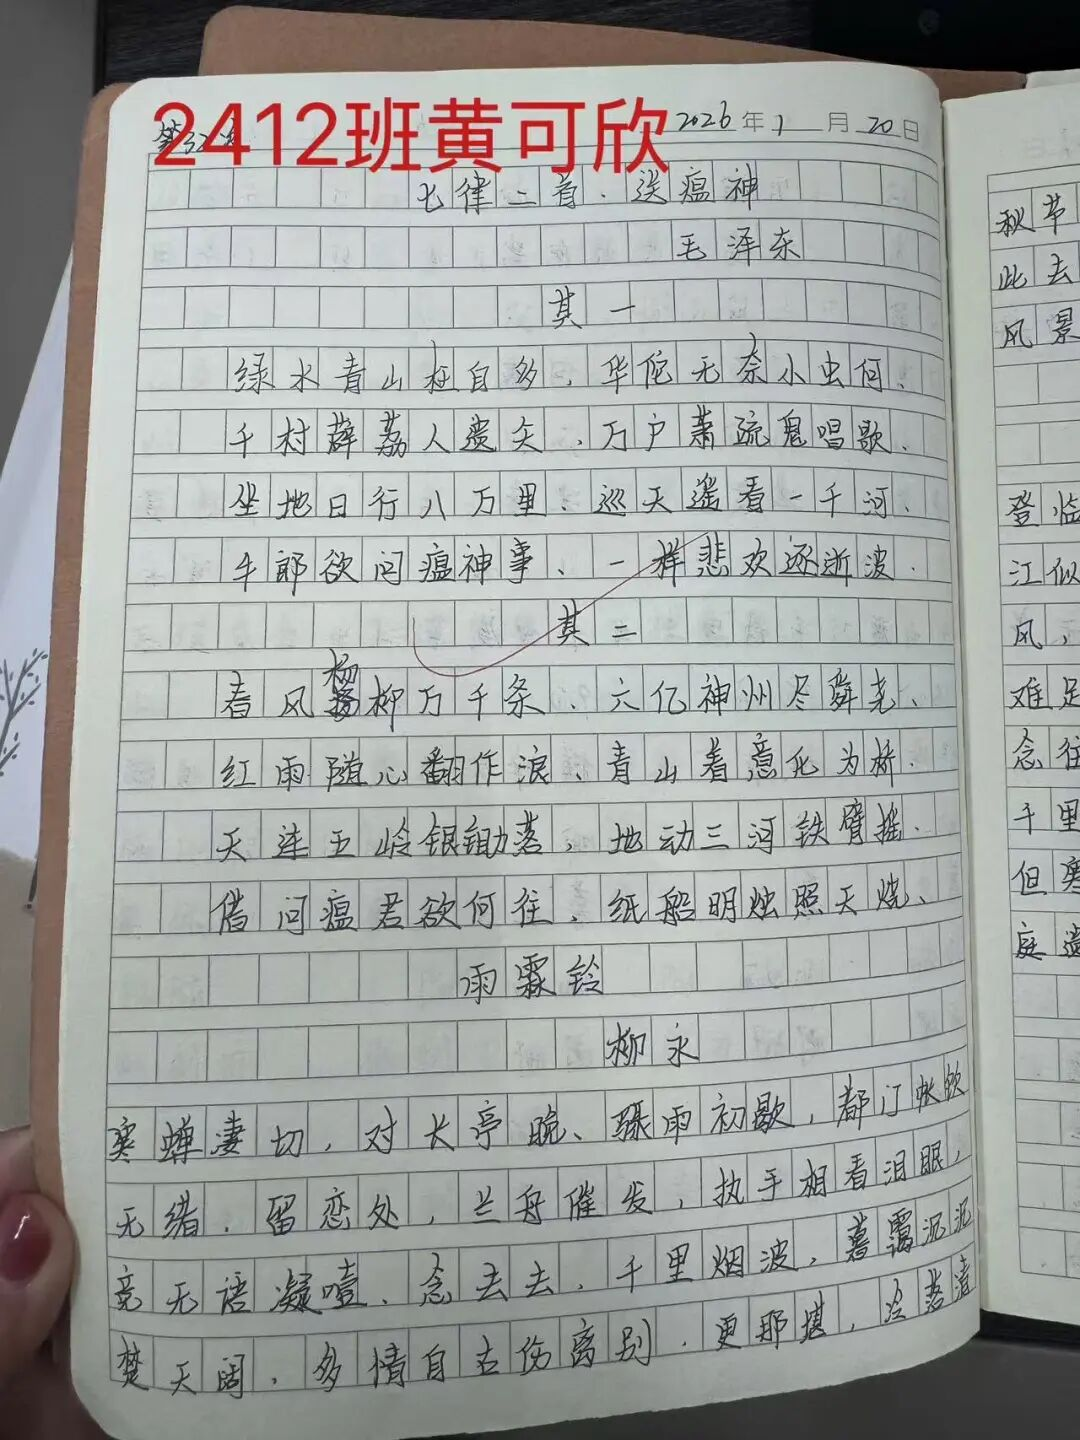 2412班黄可欣
2026年1月20日
七律二首·送瘟神
毛泽东
其一
绿水青山枉自多，华佗无奈小虫何.
千村薜荔人遗矢，万户萧疏鬼唱歌.
坐地日行八万里，巡天遥看一千河.
牛郎欲问瘟神事、一样悲欢逐逝波.
其二
春风杨柳万千条、六亿神州尽舜尧、
红雨随心翻作浪、青山着意化为桥.
天连五岭银锄落，地动三河铁臂摇.
借问瘟君欲何往，纸船明烛照天烧、
雨霖铃
柳永
寒蝉凄切，对长亭晚、骤雨初歇，都门帐饮
无绪.留恋处，兰舟催发，执手相看泪眼，
竟无语凝噎、念去去，千里烟波，暮霭沉沉
楚天阔.多情自古伤离别.更那堪，冷落清
秋节
此去
风景
登临
江似
风，
难足
念往
千里
但寒
庭遗